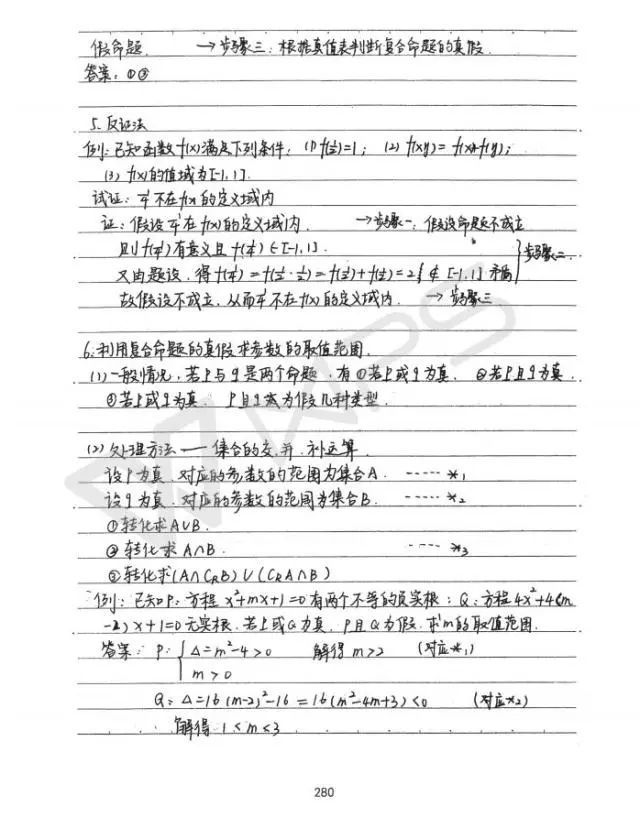 假命题. → 步骤三: 根据真值表判断复合命题的真假.
答案: ①③
5. 反证法
例: 已知函数f(x)满足下列条件: (1) f(½)=1; (2) f(xy)=f(x)+f(y);
(3) f(x)的值域为[-1,1].
试证: ¼不在f(x)的定义域内
证: 假设¼在f(x)的定义域内. → 步骤一: 假设命题不成立
则f(¼)有意义且f(¼)∈[-1,1].
又由题设, 得f(¼)=f(½·½)=f(½)+f(½)=2∉[-1,1] 矛盾 } 步骤二.
故假设不成立, 从而¼不在f(x)的定义域内. → 步骤三
6. 利用复合命题的真假求参数的取值范围.
(1) 一般情况, 若p与q是两个命题, 有①若p或q为真. ②若p且q为真.
③若p或q为真, p且q为假几种类型.
(2) 处理方法 — 集合的交、并、补运算.
设p为真, 对应的参数的范围为集合A. ····· *₁
设q为真, 对应的参数的范围为集合B. ····· *₂
①转化求A∪B.
②转化求A∩B. ····· *₃
③转化求(A∩CRB)∪(CRA∩B)
例: 已知P: 方程x²+mx+1=0有两个不等的负实根; Q: 方程4x²+4(m
-2)x+1=0无实根. 若P或Q为真, P且Q为假, 求m的取值范围.
答案: P: { Δ=m²-4>0 解得m>2 (对应*₁)
m>0
Q: Δ=16(m-2)²-16=16(m²-4m+3)<0 (对应*₂)
解得1<m<3
280
WPS